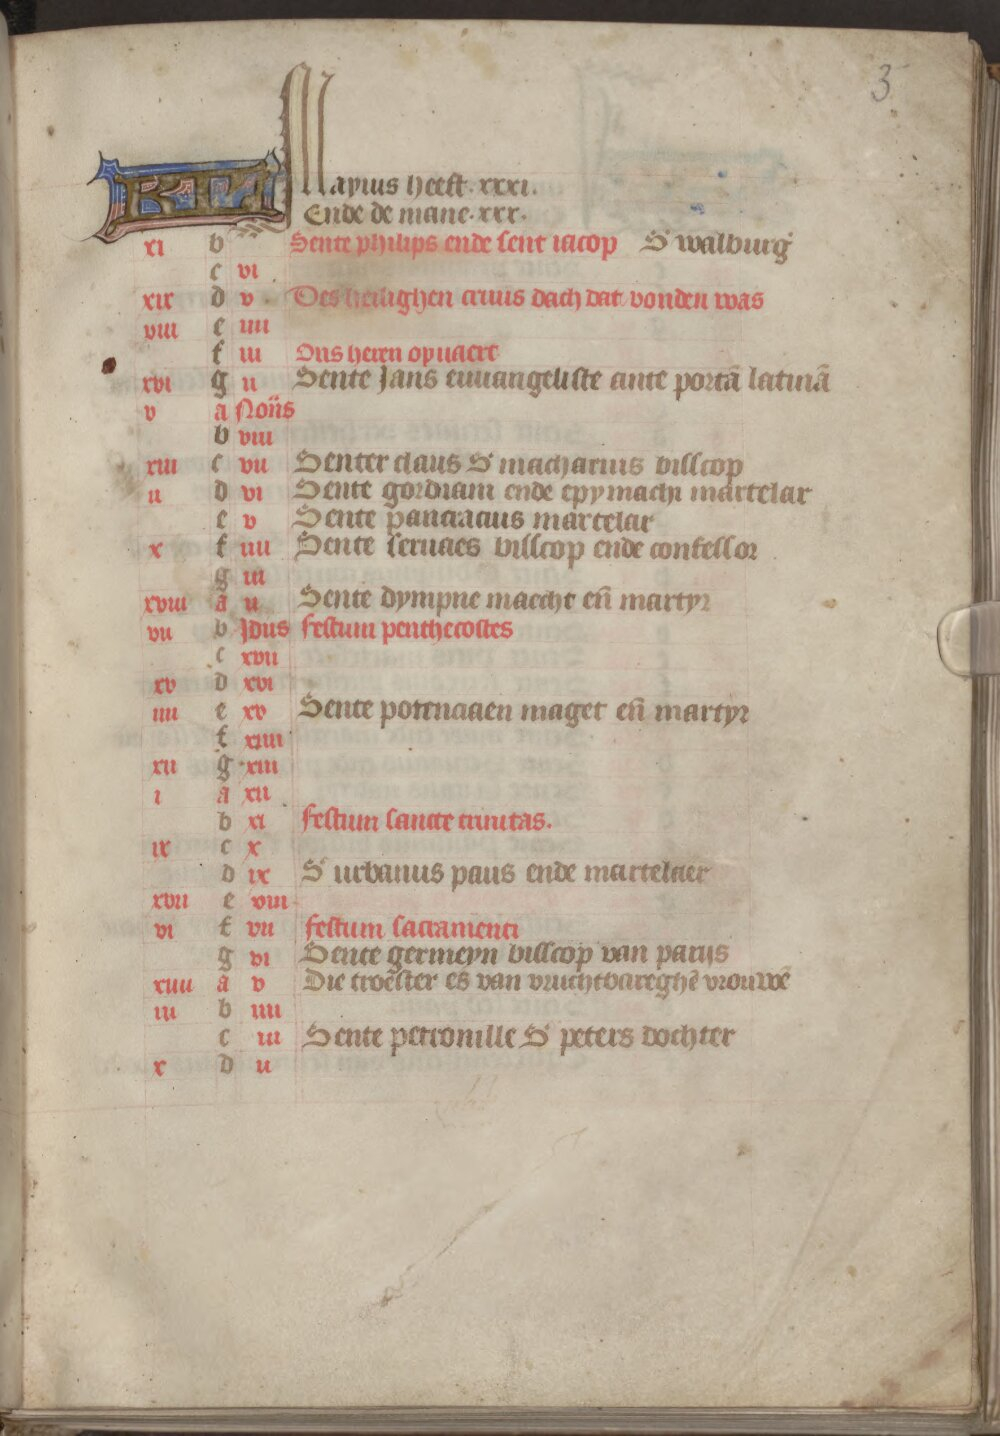 3
KL Mayius heeft. xxxi.
Ende de mane. xxx.
xi b Sente philips ende sent iacop S walburg
c vi
xix d v Des heilighen cruus dach dat vonden was
viii e iiii
f iii Ons heren opuaert
xvi g ii Sente Jans euuangeliste ante portā latinā
v a Nonis
b viii
xiii c vii Senter claus S macharius bisscop
ii d vi Sente gordiani ende epymachi martelar
e v Sente pancracius martelar
x f iiii Sente seruaes bisscop ende confessor
g iii
xviii a ii Sente dympne maecht eñ martyr
vii b Jdus festum penthecostes
c xvii
xv d xvi
iiii e xv Sente potenciaen maget eñ martyr
f xiiii
xii g xiii
i a xii
b xi festum sancte trinitas.
ix c x
d ix S urbanus paus ende martelaer
xvii e viii
vi f vii festum sacramenti
g vi Sente germeyn bisscop van parijs
xiiii a v Die troester es van vruchtbareghē vrouwē
iii b iiii
c iii Sente petronille S peters dochter
x d ii